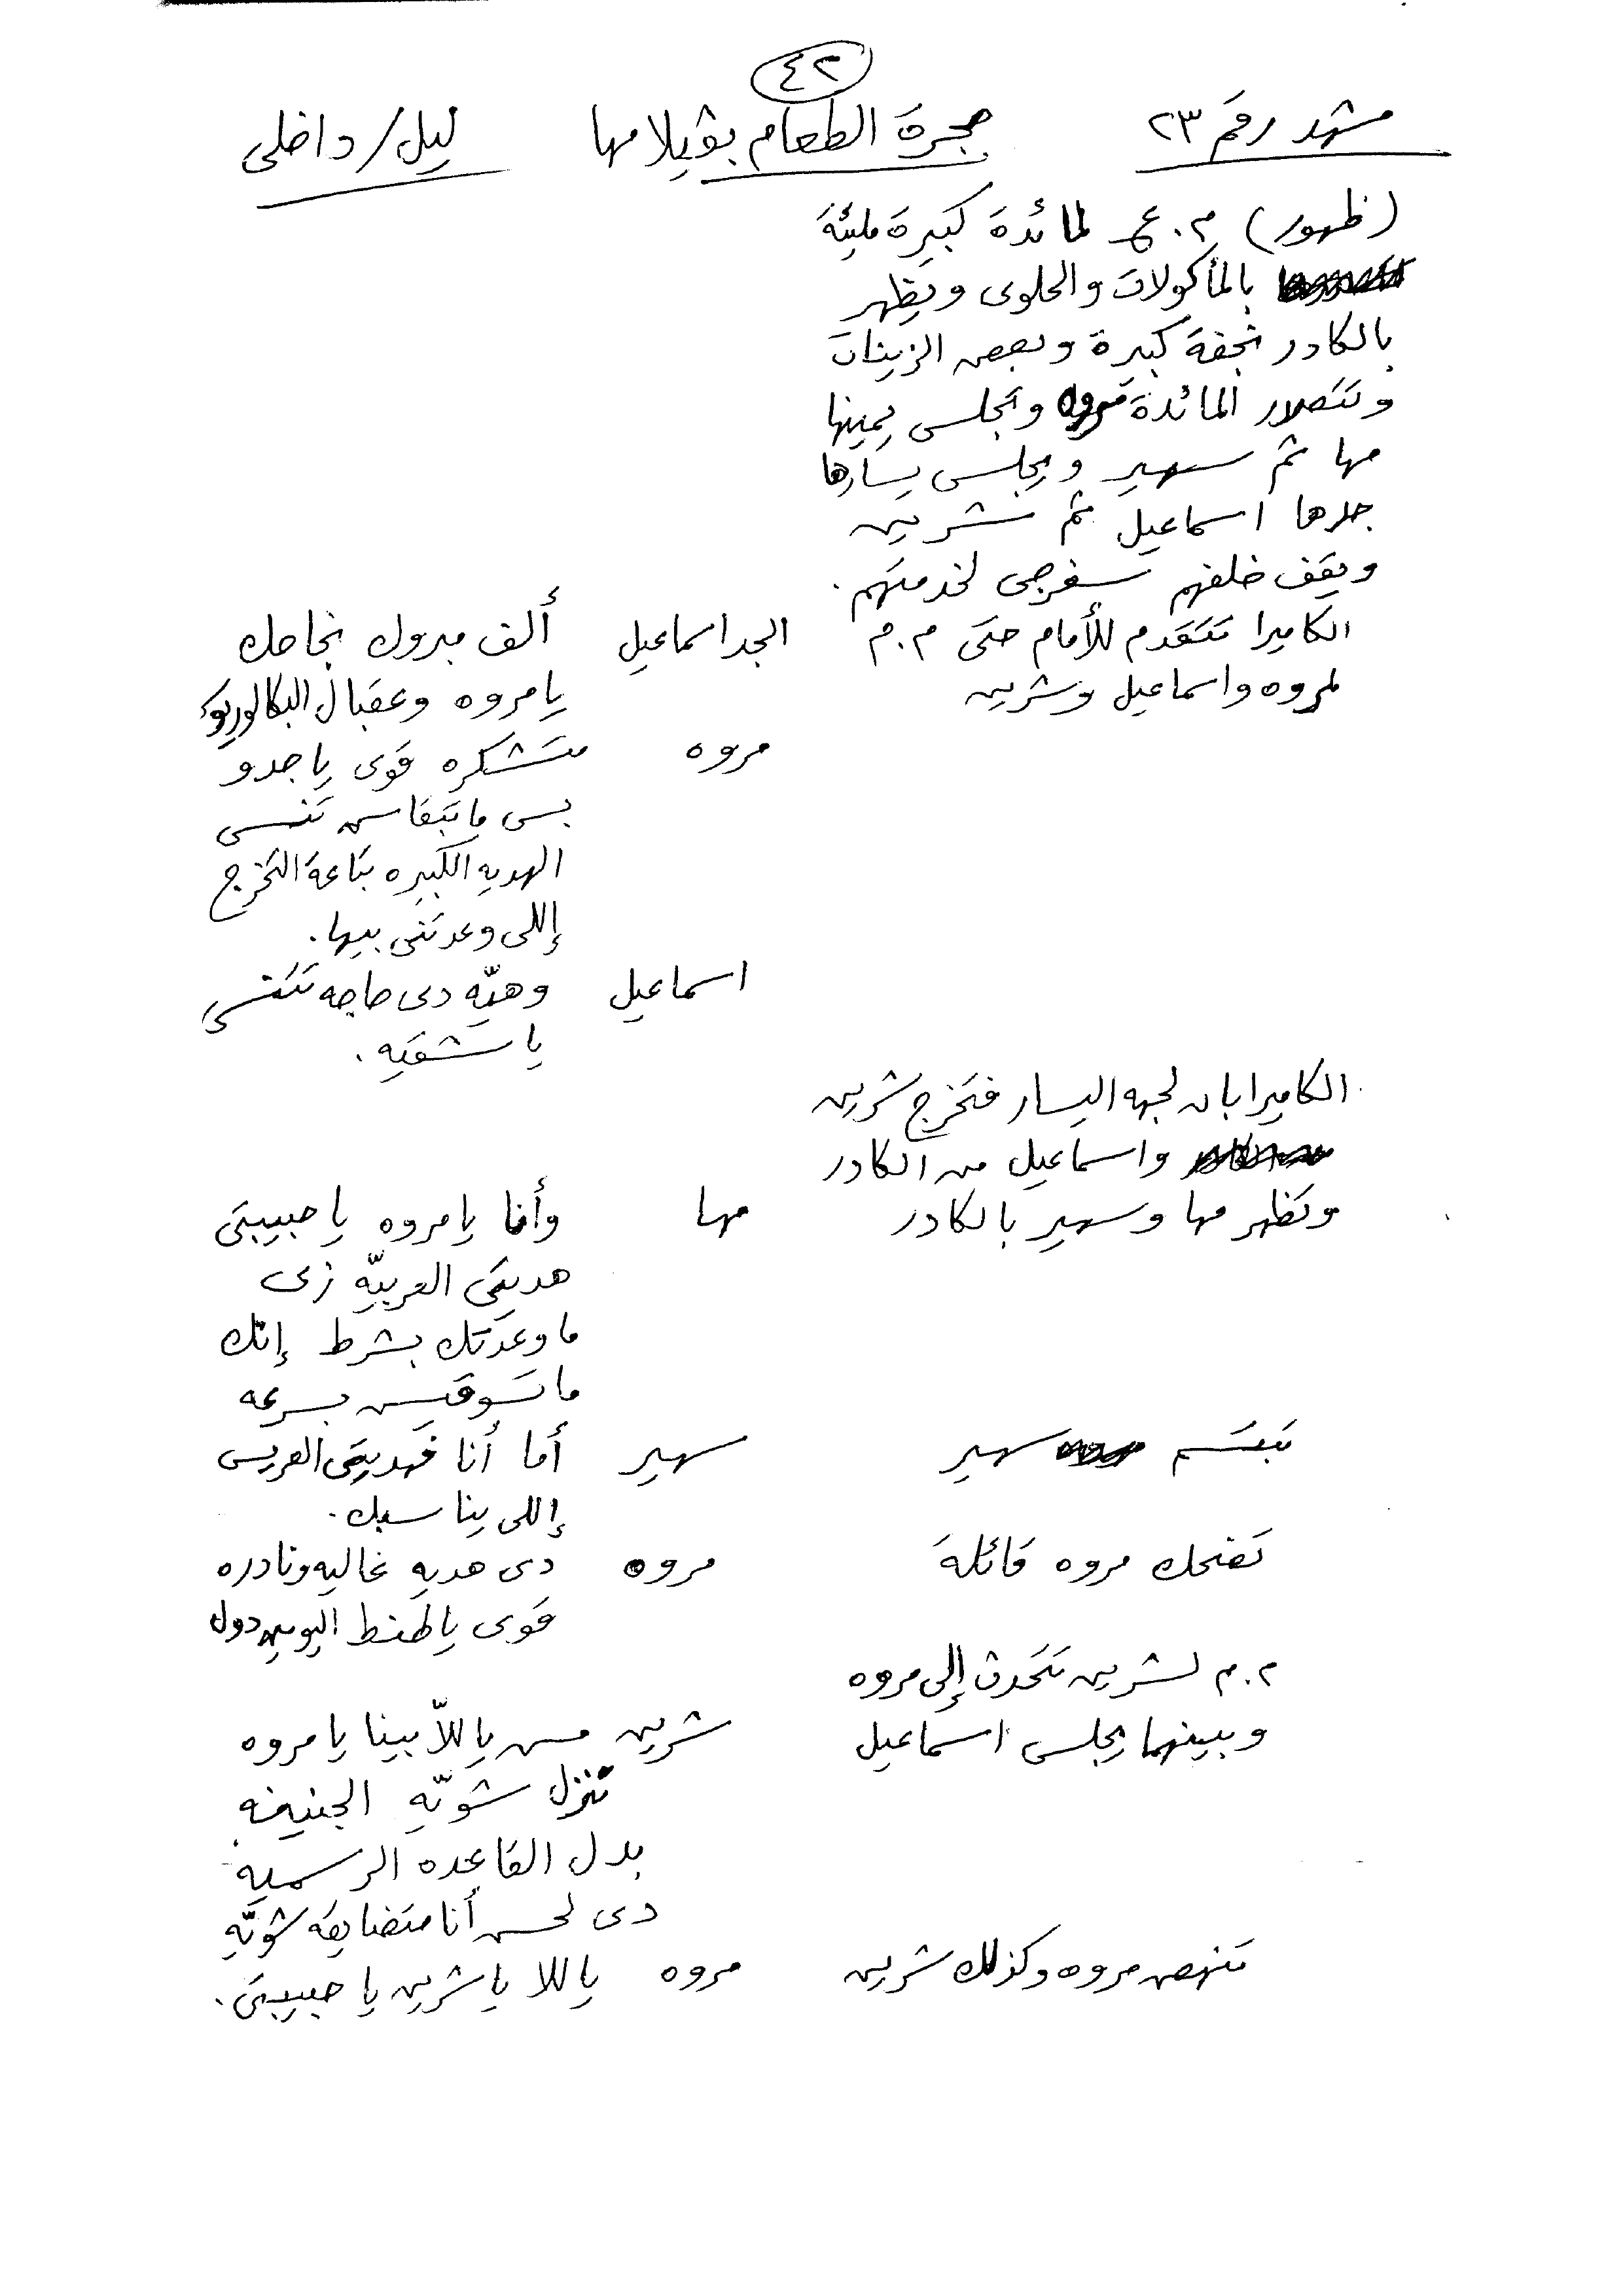 ٤٢
مشهد رقم ٢٣ حجرة الطعام بڤيلا مها ليل/داخلى
(ظهور) م.ع لمائدة كبيرة مليئة
بالمأكولات والحلوى ويظهر
بالكادر نجفة كبيرة وبعض الزينات
وتتصدر المائدة مروه وتجلس يمينها
مها ثم سهير ويجلس يسارها
جدها اسماعيل ثم شرين
ويقف خلفهم سفرجى لخدمتهم.
الكاميرا تتقدم للأمام حتى م.م الجد اسماعيل ألف مبروك نجاحك
لمروه واسماعيل وشرين يا مروه وعقبال البكالوريوس
مروه متشكره قوى يا جدو
بس ما تبقاش تنسى
الهديه الكبيره بتاعة التخرج
إللى وعدتنى بيها.
اسماعيل وهيّه دى حاجه تتنسى
يا شقيه.
الكاميرا بان لجهه اليسار فتخرج شرين
واسماعيل من الكادر
وتظهر مها وسهير بالكادر مها وأنا يا مروه يا حبيبتى
هديتى العربيّه زى
ما وعدتك بشرط إنك
ما تسوقيش بسرعه
تبتسم سهير سهير أما أنا فهديتى العريس
إللى يناسبك.
تضحك مروه قائلة مروه دى هديه غاليه ونادره
قوى يا طنط اليومين دول
م.م لشرين تتحدث إلى مروه
وبينهما يجلس اسماعيل شرين مش ياللّا بينا يا مروه
ننزل شويّه الجنينه
بدل القاعده الرسميه
دى لحسن أنا متضايقه شويّه
تنهض مروه وكذلك شرين مروه ياللا يا شرين يا حبيبتى.